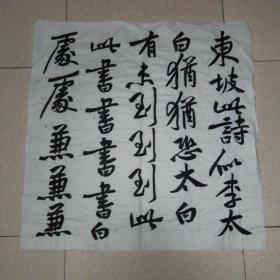 東坡此詩似李太
白猶猶恐太白
有未到到到此
此書書書書白
處處兼兼兼